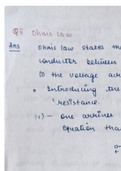 Q8 Ohms Law
Ans Ohms law states tha
conductor between
the voltage a
• Introducing the
resistance.
– one arrives
equation tha